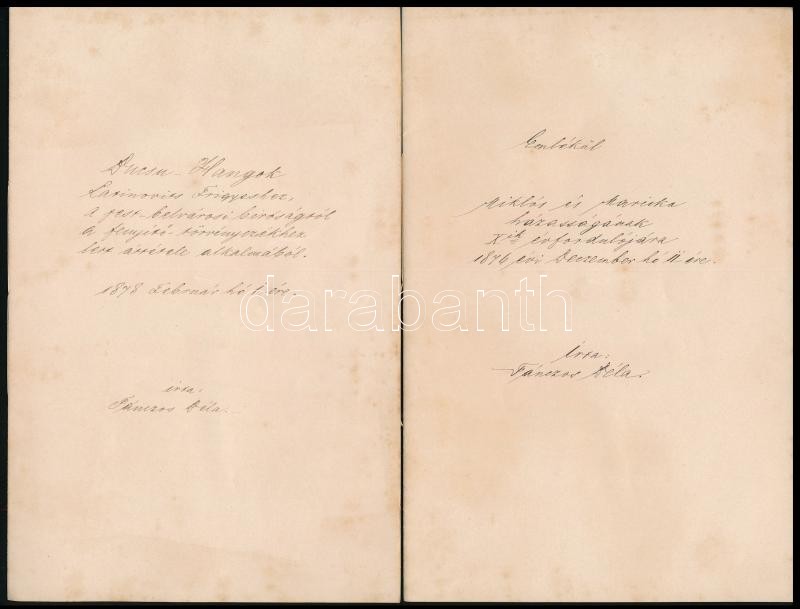 Búcsu-Hangok
Latinovits Frigyeshez,
a pest-belvárosi biróságtól
a fenyitö-törvényszékhez
lett áttétele alkalmából.
1878 Február hó 1 ére.
irta:
Tánczos Béla.
Emlékül
Miklós és Mariska
házasságának
X ik évfordulójára
1876 évi Deczember hó 11 ére.
Irta:
Tánczos Béla.
darabanth